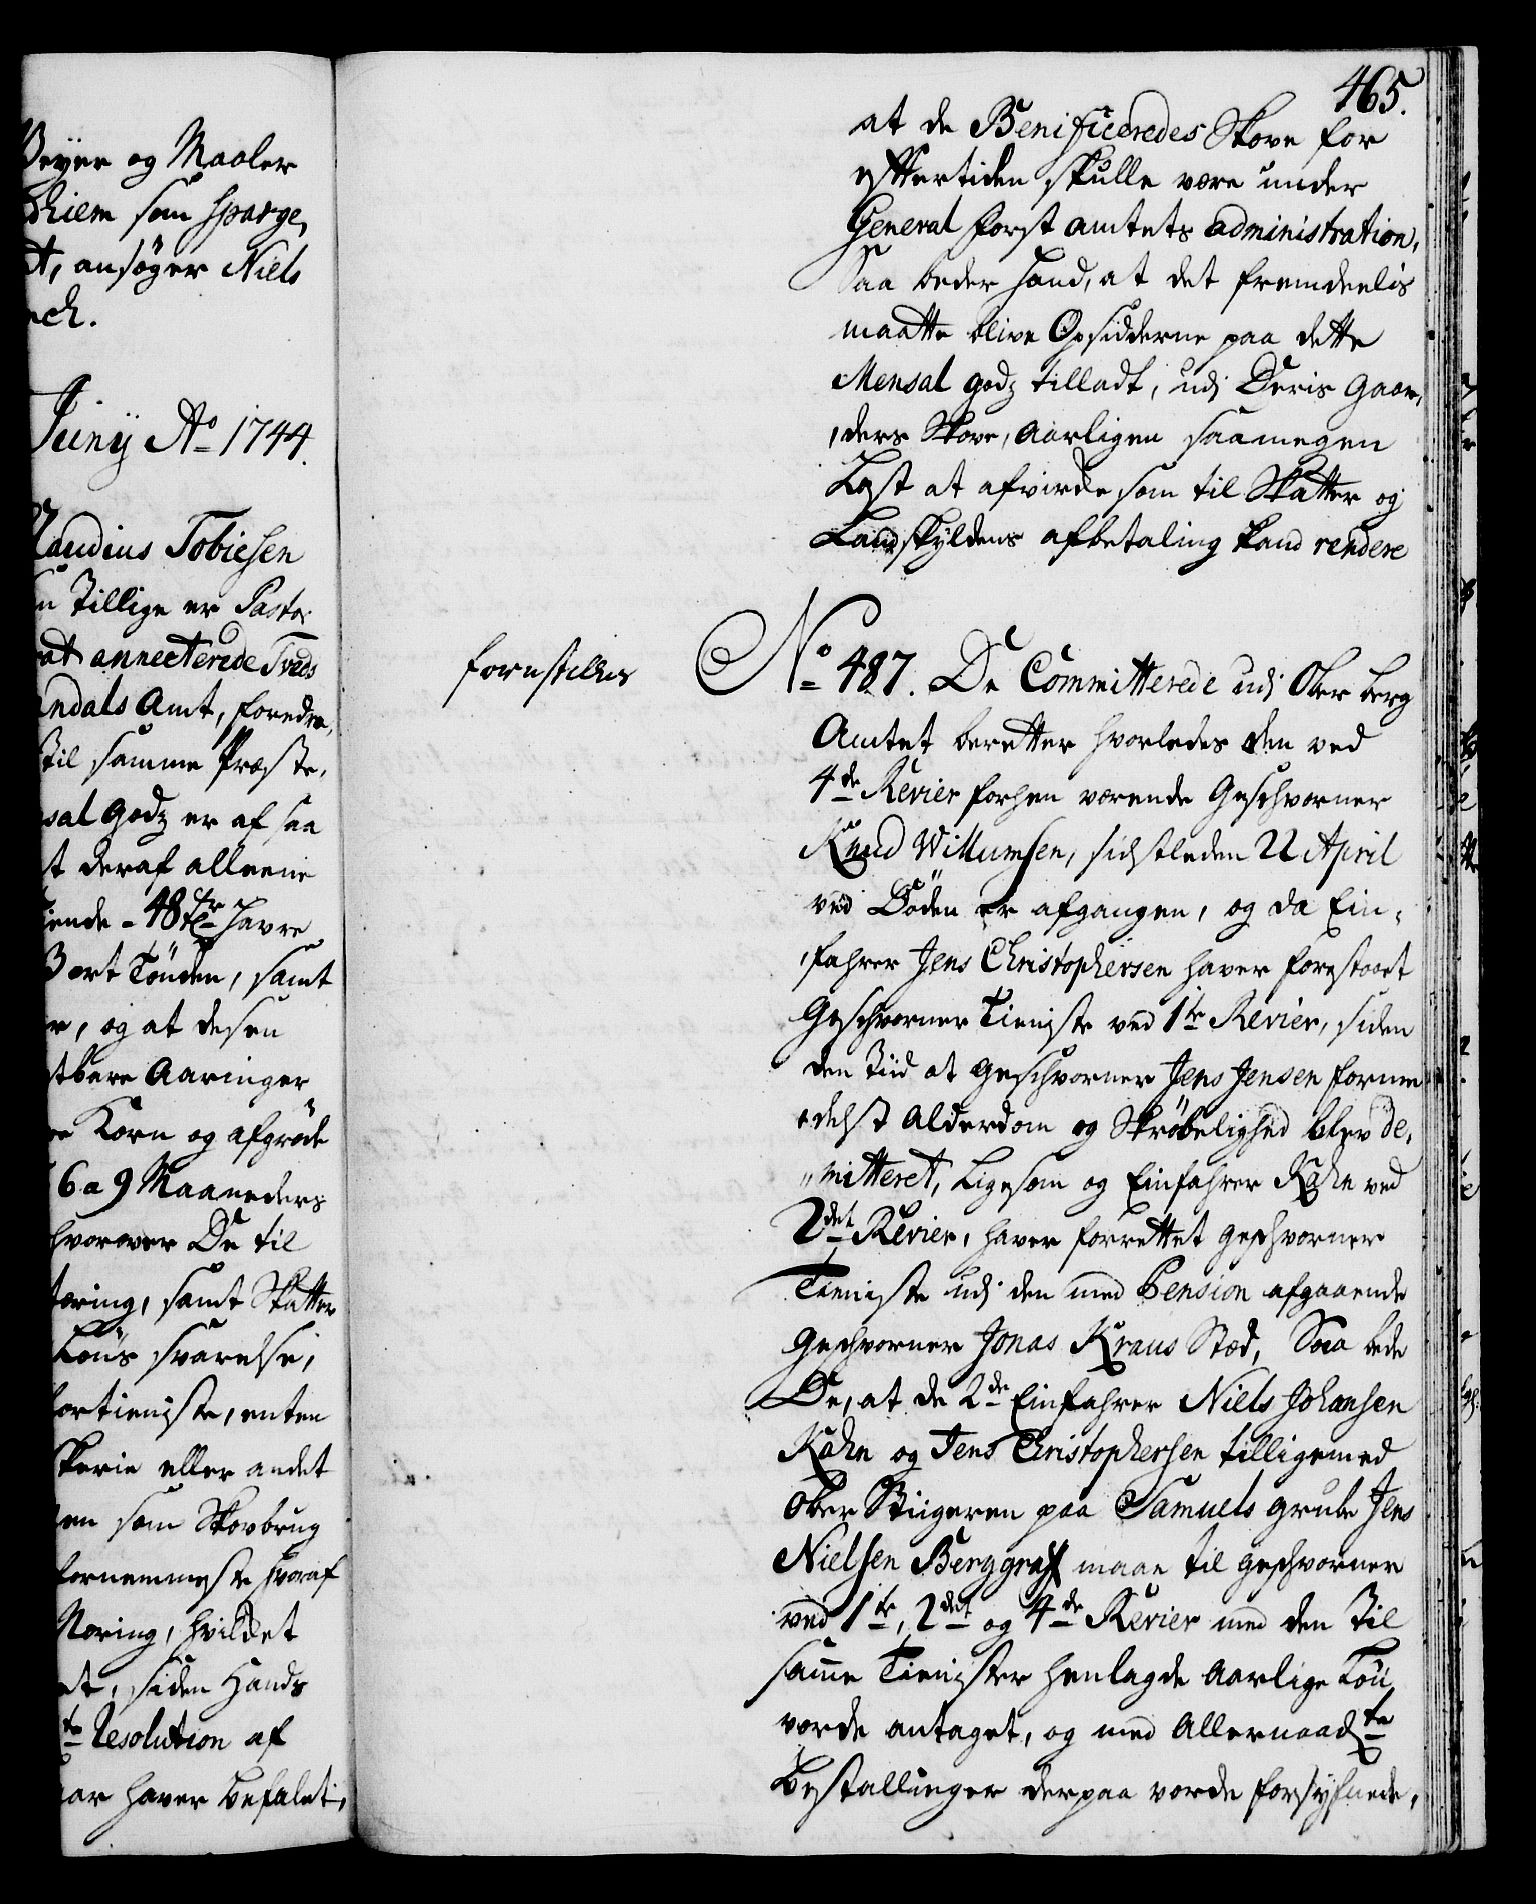 Beyer og Maaler
som spørge,
ansøger Niels
Juny Ao 1744.
Claudius Tobiesen
Tillige er Pastor
annecterede Tveds
Amt, foredra,
til samme Præste,
godz er af saa
deraf alleene
48 Tr havre
Bort Tönden, samt
og at desen
Aaringer
Korn og afgröde
6 a 9 Maaneders
hvorover De til
næring, samt Skatter
svarelse,
fortieniste, enten
eller andet
som Skovbrug
fornemmeste hvoraf
Næring, hvilket
siden Hands
Resolution af
haver befalet,
465.
at de Benificeredes Skove for
efftertiden skulle være under
General forst amtets administration,
Saa beder hand, at det fremdeelis
maatte blive Opsidderne paa dette
Mensal godz tilladt, udj Deris Gaar,
,ders Skove, aarligen saamegen
Last at afvirke som til Skatter og
Landskyldens afbetaling kand rendere
forestilles
No 487. De Committerede udj Ober berg
Amtet beretter hvorledes den ved
4de Revier forhen værende Geschworner
Knud Willumsen, sidstleden 22 April
ved Döden er afgangen, og da Ein-
,fahrer Jens Christophersen haver forestaaet
Geschworner Tieniste ved 1te Revier, siden
den Tiid at Geschworner Jens Jensen forme
,delst Alderdom og Skröbelighed blev de,
,,mitteret, Ligesom og Einfahrer Kahn ved
2det Revier, haver forrettet geschworner
Tieniste udj den med Pension afgaaende
Geschworner Jonas Kraus Stæd, Saa bede
De, at de 2de Einfahrer Niels Johansen
Kahn og Jens Christophersen tilligemed
Ober Stiigeren paa Samuels grube Jens
Nielsen Berggraff maae til geschworner
ved 1te, 2det og 4de Revier med den Til
samme Tienister henlagde Aarlige Lön
vorde antaget, og med Allernaadte
bestallinger derpaa vorde forsÿnede,